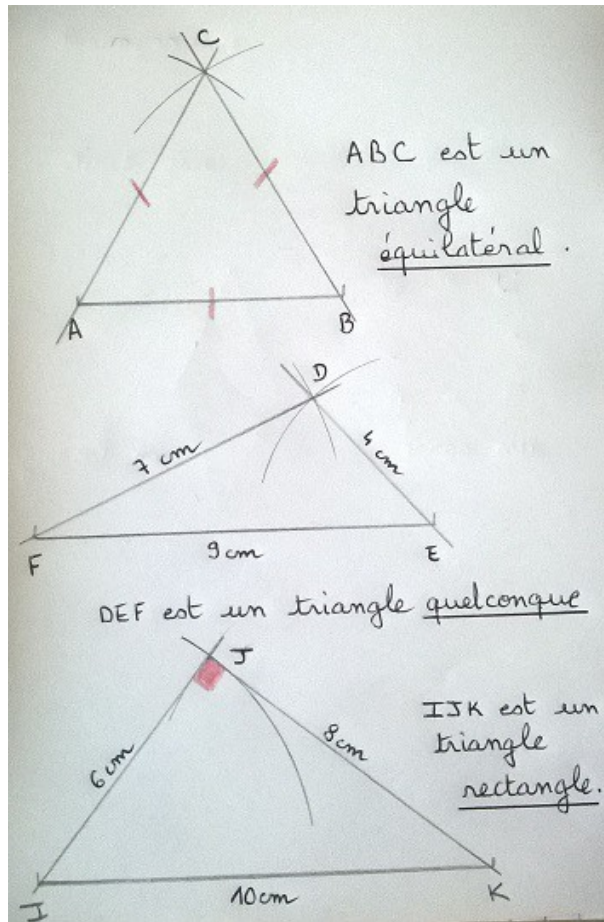 C
ABC est un
triangle
équilatéral.
A
B
D
7 cm
4 cm
F
9 cm
E
DEF est un triangle quelconque
J
IJK est un
triangle
rectangle.
6 cm
8 cm
I
10 cm
K